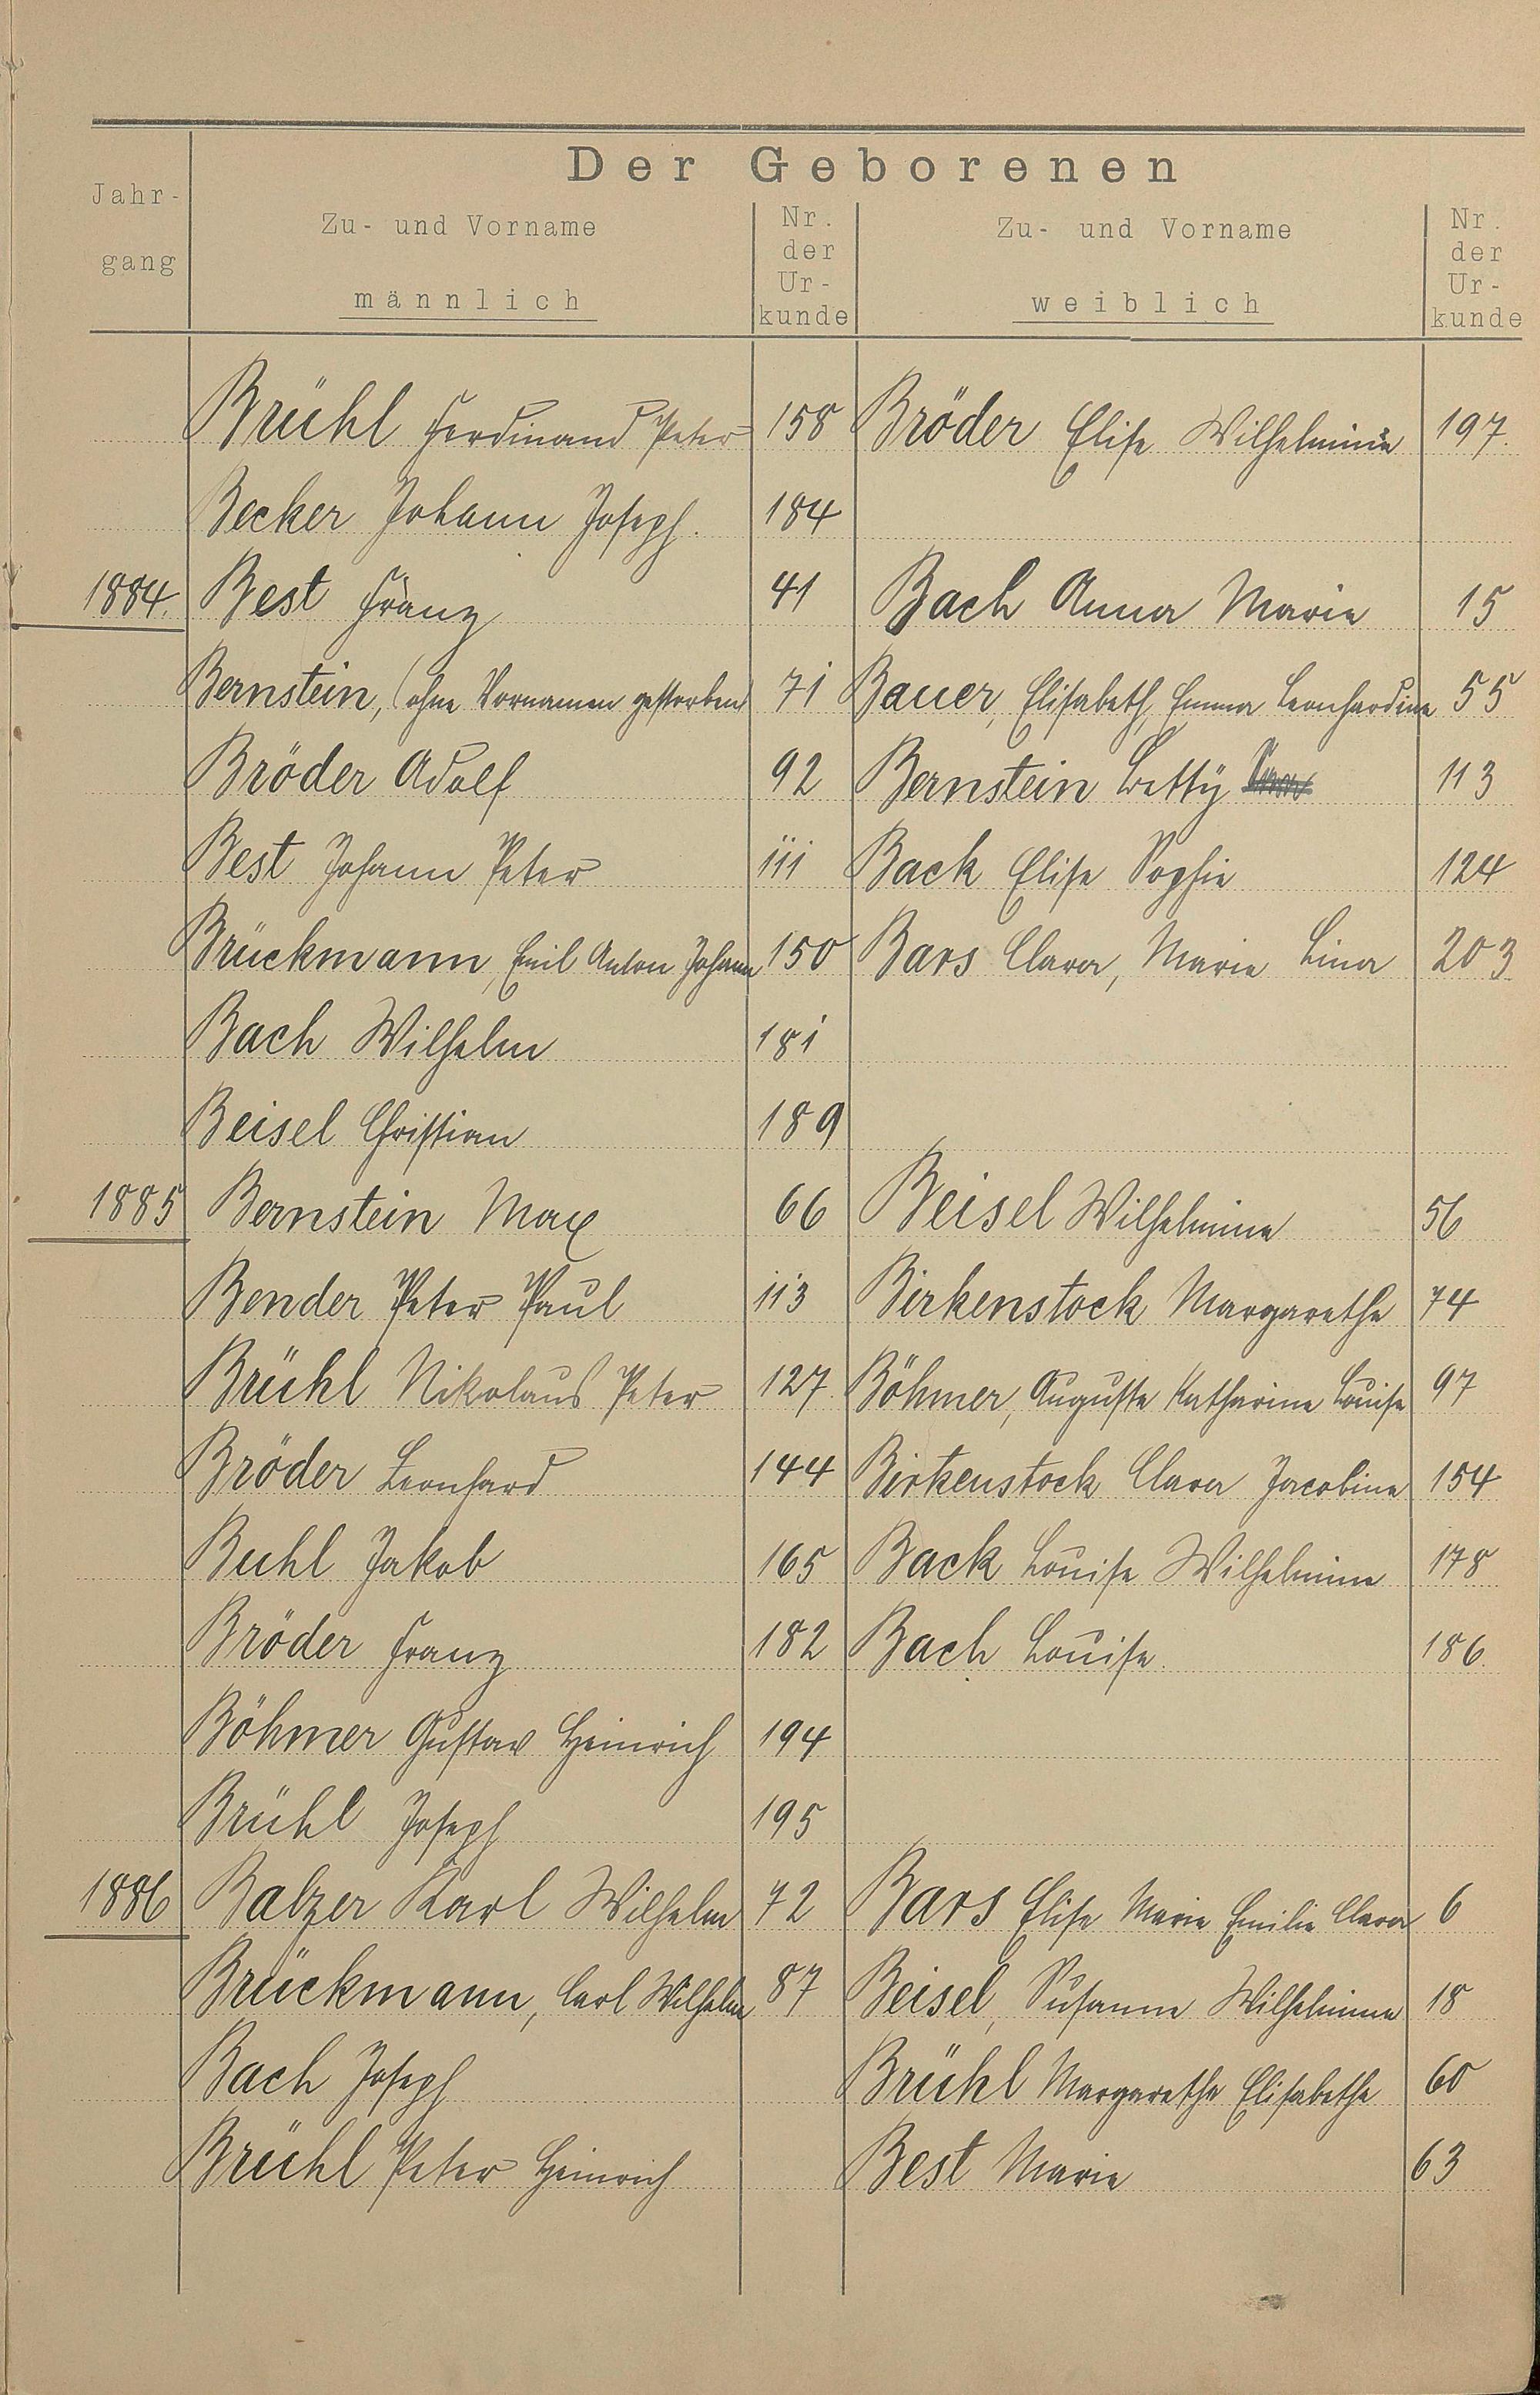 Der Geborenen
Jahr-
gang
Zu- und Vorname
männlich
Nr.
der
Ur-
kunde
Zu- und Vorname
weiblich
Nr.
der
Ur-
kunde
Brühl Ferdinand Peter 158 Bröder Elise Wilhelmine 197.
Becker Johann Joseph. 184
1884. Best Franz 41 Bach Anna Marie 15
Bernstein, (ohne Vornamen gestorben) 71 Bauer, Elisabeth, Emma Leonhardine 55
Bröder Adolf 92 Bernstein Betty 113
Best Johann Peter 111 Back Elise Sophie 124
Brückmann, Emil Anton Johann 150 Bars Clara, Marie Lina 203
Bach Wilhelm 181
Beisel Christian 189
1885 Bernstein Max 66 Beisel Wilhelmine 56
Bender Peter Paul 113 Birkenstock Margarethe 74
Brühl Nikolaus Peter 127. Böhmer, Auguste Katharine Louise 97
Bröder Leonhard 144 Birkenstock Clara Jacobine 154
Buhl Jakob 165 Back Louise Wilhelmine 178
Bröder Franz 182 Bach Louise. 186.
Böhmer Gustav Heinrich 194
Brühl Joseph 195
1886 Balzer Karl Wilhelm 72 Bars Elise Marie Emilie Clara 6
Brückmann, Carl Wilhelm 87 Beisel, Susanne Wilhelmine 18
Bach Joseph Brühl Margarethe Elisabethe 60
Brühl Peter Heinrich Best Marie 63